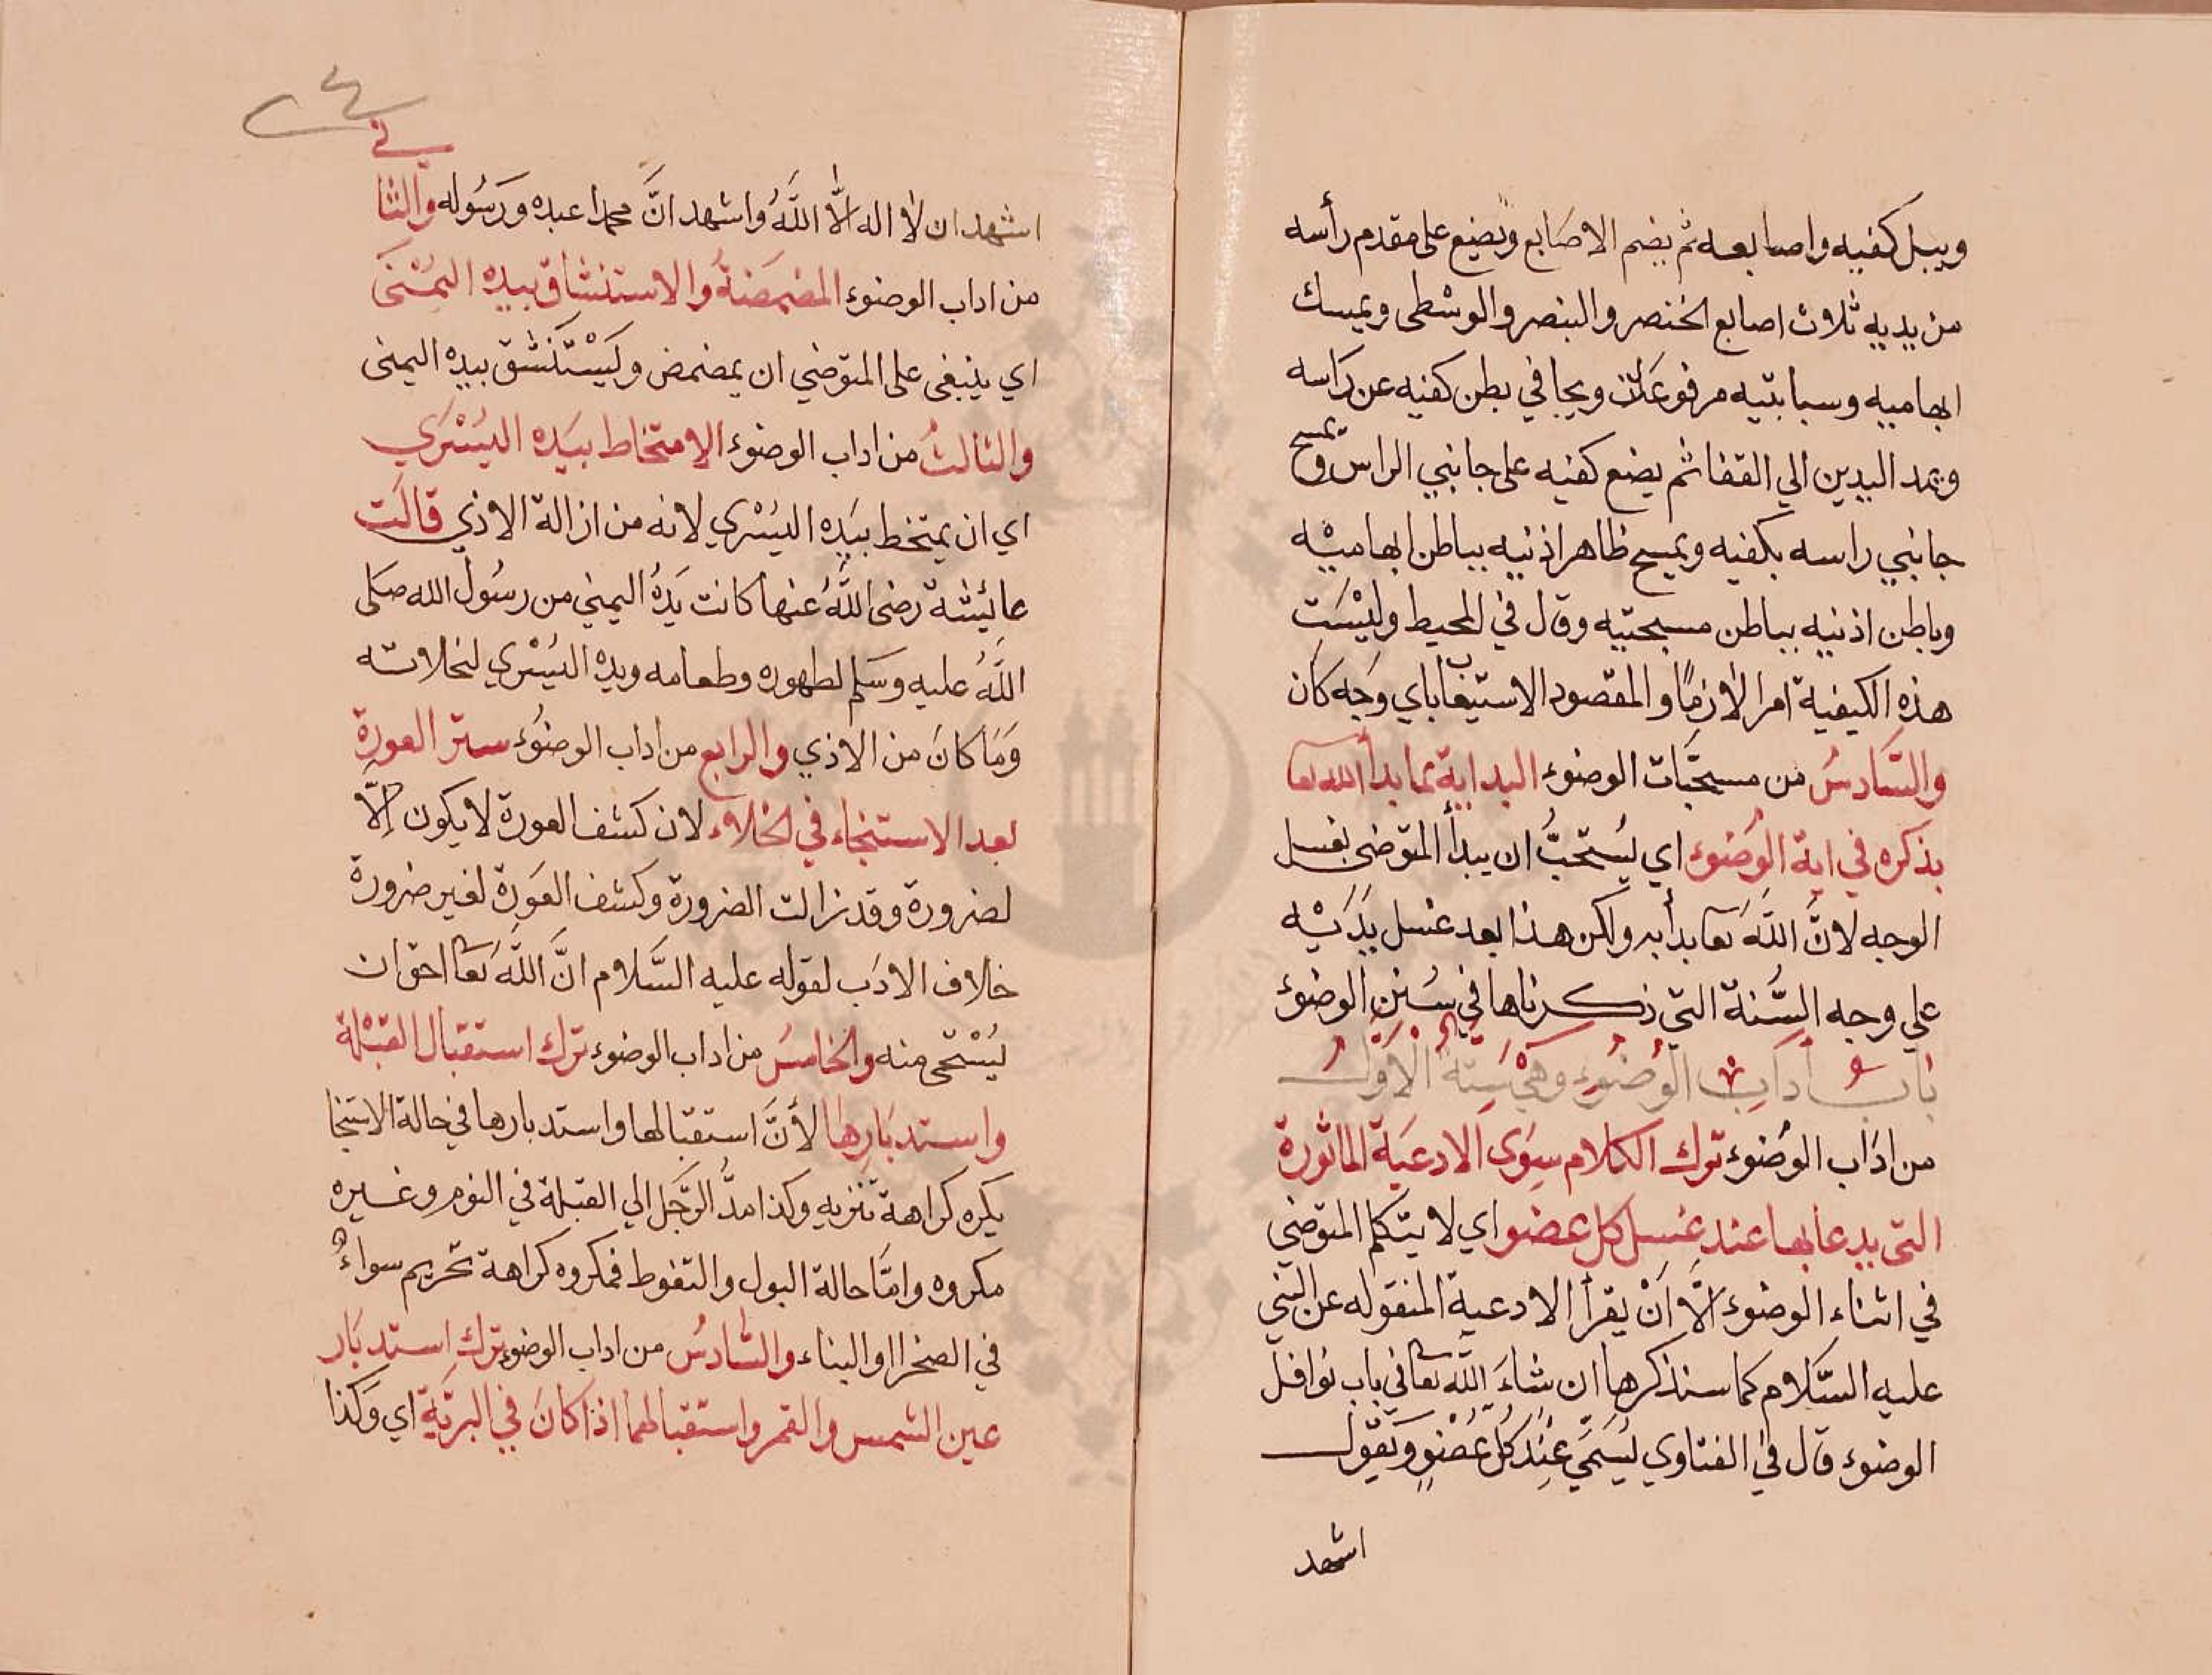 ويبل كفيه واصابعه ثم يضم الاصابع ويضع على مقدم رأسه
من يديه ثلاث اصابع الخنصر والبنصر والوسطى ويمسك
ابهاميه وسبابتيه مرفوعات ويجافي بطن كفيه عن رأسه
ويمد اليدين الي القفا ثم يضع كفيه على جانبي الراس ويمسح
جانبي راسه بكفيه ويمسح ظاهر اذنيه بباطن ابهاميه
وباطن اذنيه بباطن مسبحتيه وقال في المحيط وليست
هذه الكيفية امرا لازما والمقصود الاستيعاب باي وجه كان
والسادس من مستحبات الوضوء البداية بما بدأ الله تعا
بذكره في اية الوضوء اي يستحب ان يبدأ المتوضي بغسل
الوجه لان الله تعا بدأ به ولكن هذا بعد غسل يديه
علي وجه السنة التي ذكرناها في سنن الوضوء
باب اداب الوضوء وهي ستة الاول
من اداب الوضوء ترك الكلام سوى الادعية الماثورة
التي يدعا بها عند غسل كل عضو اي لا يتكلم المتوضي
في اثناء الوضوء الا ان يقرأ الادعية المنقوله عن النبي
عليه السلام كما سنذكرها ان شاء الله تعا في باب نوافل
الوضوء قال في الفتاوي يسمي عند كل عضو ويقول
اشهد
٢٤
اشهد ان لا اله الا الله واشهد ان محمدا عبده ورسوله والثاني
من اداب الوضوء المضمضة والاستنشاق بيده اليمنى
اي ينبغي على المتوضي ان يمضمض وليستنشق بيده اليمنى
والثالث من اداب الوضوء الامتخاط بيده اليسري
اي ان يمتخط بيده اليسري لانه من ازالة الاذي قالت
عائشة رضى الله عنها كانت يده اليمني من رسول الله صلى
الله عليه وسلم لطهوره وطعامه ويده اليسري لخلائه
وما كان من الاذي والرابع من اداب الوضوء ستر العورة
بعد الاستنجاء في الخلاء لان كشف العورة لا يكون الا
لضرورة وقد زالت الضرورة وكشف العورة لغير ضرورة
خلاف الادب لقوله عليه السلام ان الله تعا احق ان
يستحى منه والخامس من اداب الوضوء ترك استقبال القبلة
واستدبارها لأن استقبالها واستدبارها في حالة الاستنجا
يكره كراهة تنزيه وكذا مد الرجل الي القبلة في النوم وغيره
مكروه واما حالة البول والتغوط فمكروه كراهة تحريم سواء
في الصخرا او البناء والسادس من اداب الوضوء ترك استدبار
عين الشمس والقمر واستقبالهما اذا كان في البرية اي وكذا